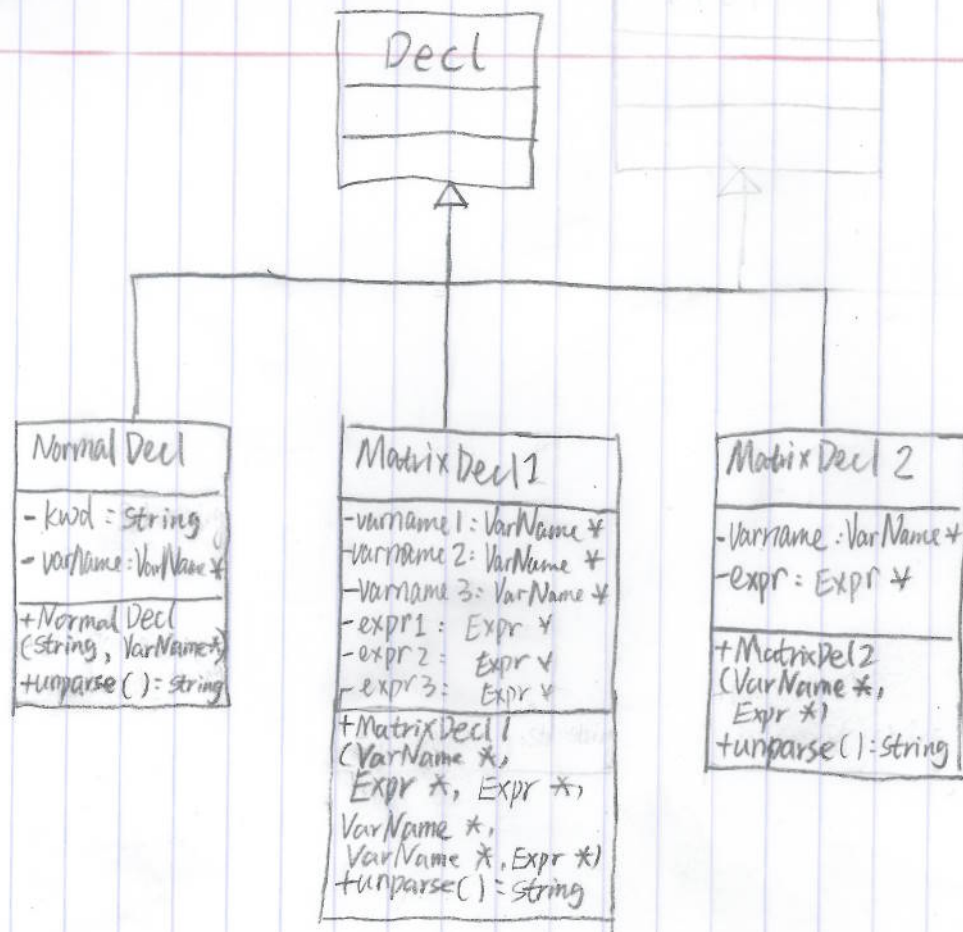 Decl
Normal Decl
- kwd : string
- varName : VarName *
+Normal Decl
(string, VarName*)
+unparse() : string
Matrix Decl 1
-varname1 : VarName *
-varname 2 : VarName *
-varname 3 : VarName *
-expr1 : Expr *
-expr2 : Expr *
-expr3 : Expr *
+MatrixDecl 1
(VarName *,
Expr *, Expr *,
VarName *,
VarName *, Expr *)
+unparse() : string
Matrix Decl 2
-varname : VarName *
-expr : Expr *
+MatrixDel2
(VarName *,
Expr *)
+unparse() : string